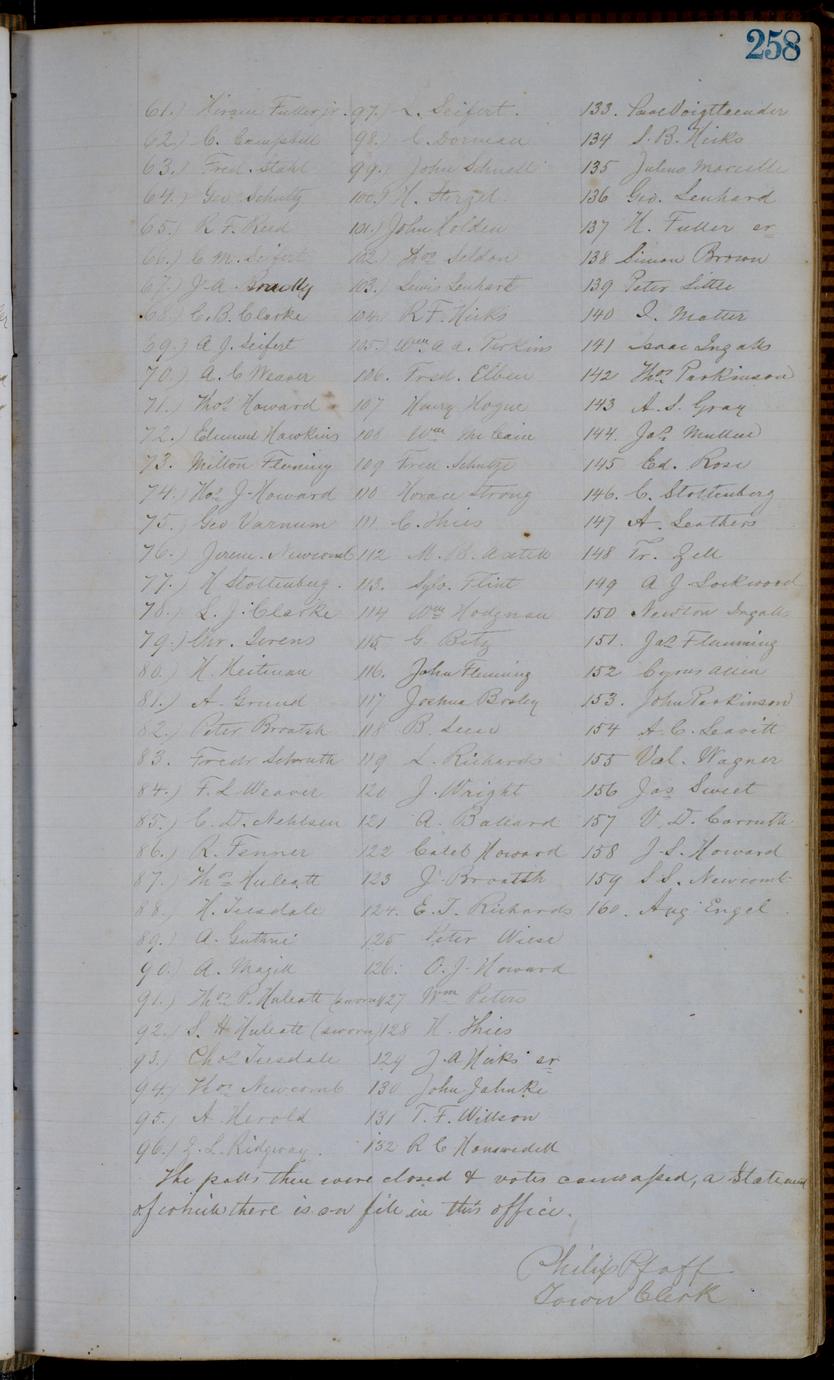 258
61.) Hiram Fuller jr.
62.) C. Campbell
63.) Fred. Stahl
64.) Geo Schultz
65.) R. F. Reed
66.) C. M. Seifert
67.) J. A. Bradly
68.) C. B. Clarke
69.) A J. Seifert
70.) A. C Weaver
71.) Thos Howard
72.) Edmund Hawkins
73. Milton Fleming
74.) Thos J. Howard
75.) Geo Varnum
76.) Jerem. Newcomb
77.) H Stoltenberg.
78.) L. J. Clarke
79.) Chr. Sivens
80.) H. Heitman
81.) A. Grund
82.) Peter Broatsh
83. Fredr Schruth
84.) F. L Weaver
85.) C. D. Nehlsen
86.) R. Fenner
87.) Thos Huleatt
88.) H. Tiesdale
89.) A. Guthri
90.) A. Magill
91.) Thos P. Huleatt (sworn)
92.) S. H Huleatt (sworn)
93.) Chas Tiesdale
94.) Thos Newcomb
95.) A Herold
96.) J. L. Ridgway.
97.) L. Seifert.
98.) C. Dorman
99.) John Schnell
100.) H. Sterzel
101.) John Colden
102.) Thos Seldon
103.) Lewis Lenhart
104. R F. Hicks
105.) Wm A a. Perkins
106. Fred. Elben
107 Henry Hogue
108 Wm McCain
109 Fred Schultze
110 Horace Strong
111 C. Thies
112 M. B. Axtell
113. Sylv. Flint
114 Wm Hodgman
115 G. Betz
116. John Fleming
117 Joshua Braley
118 B.
119 L. Richards
120 J. Wright
121 A. Ballard
122 Caleb Howard
123 J. Broatsh
124. E. T. Richards
125 Peter Wiese
126. O. J. Howard
127 Wm Peters
128 H. Thies
129 J A Hicks sr
130 John Jahnke
131 T. F. Willson
132 R C
133. Paul Voigtlaender
134 S. B. Hicks
135 Julius
136 Geo. Lenhard
137 H. Fuller sr
138 Simon Brown
139 Peter Little
140 I. Matter
141 Isaac Ingalls
142 Thos Parkinson
143 A. S. Gray
144. Jas Mullen
145 Ed. Rose
146. C. Stoltenberg
147 A. Leathers
148 Fr. Zell
149 A J. Lockwood
150 Newton Ingalls
151. Jas Flemming
152 Cyrus Allen
153. John Parkinson
154 A. C. Leavitt
155 Val. Wagner
156 Jas Sweet
157 V. D. Carruth
158 J. S. Howard
159 S. S. Newcomb
160. Aug Engel
The polls then were closed & votes canvassed, a Statement
of which there is on file in this office.
Philip Pfaff
Town Clerk